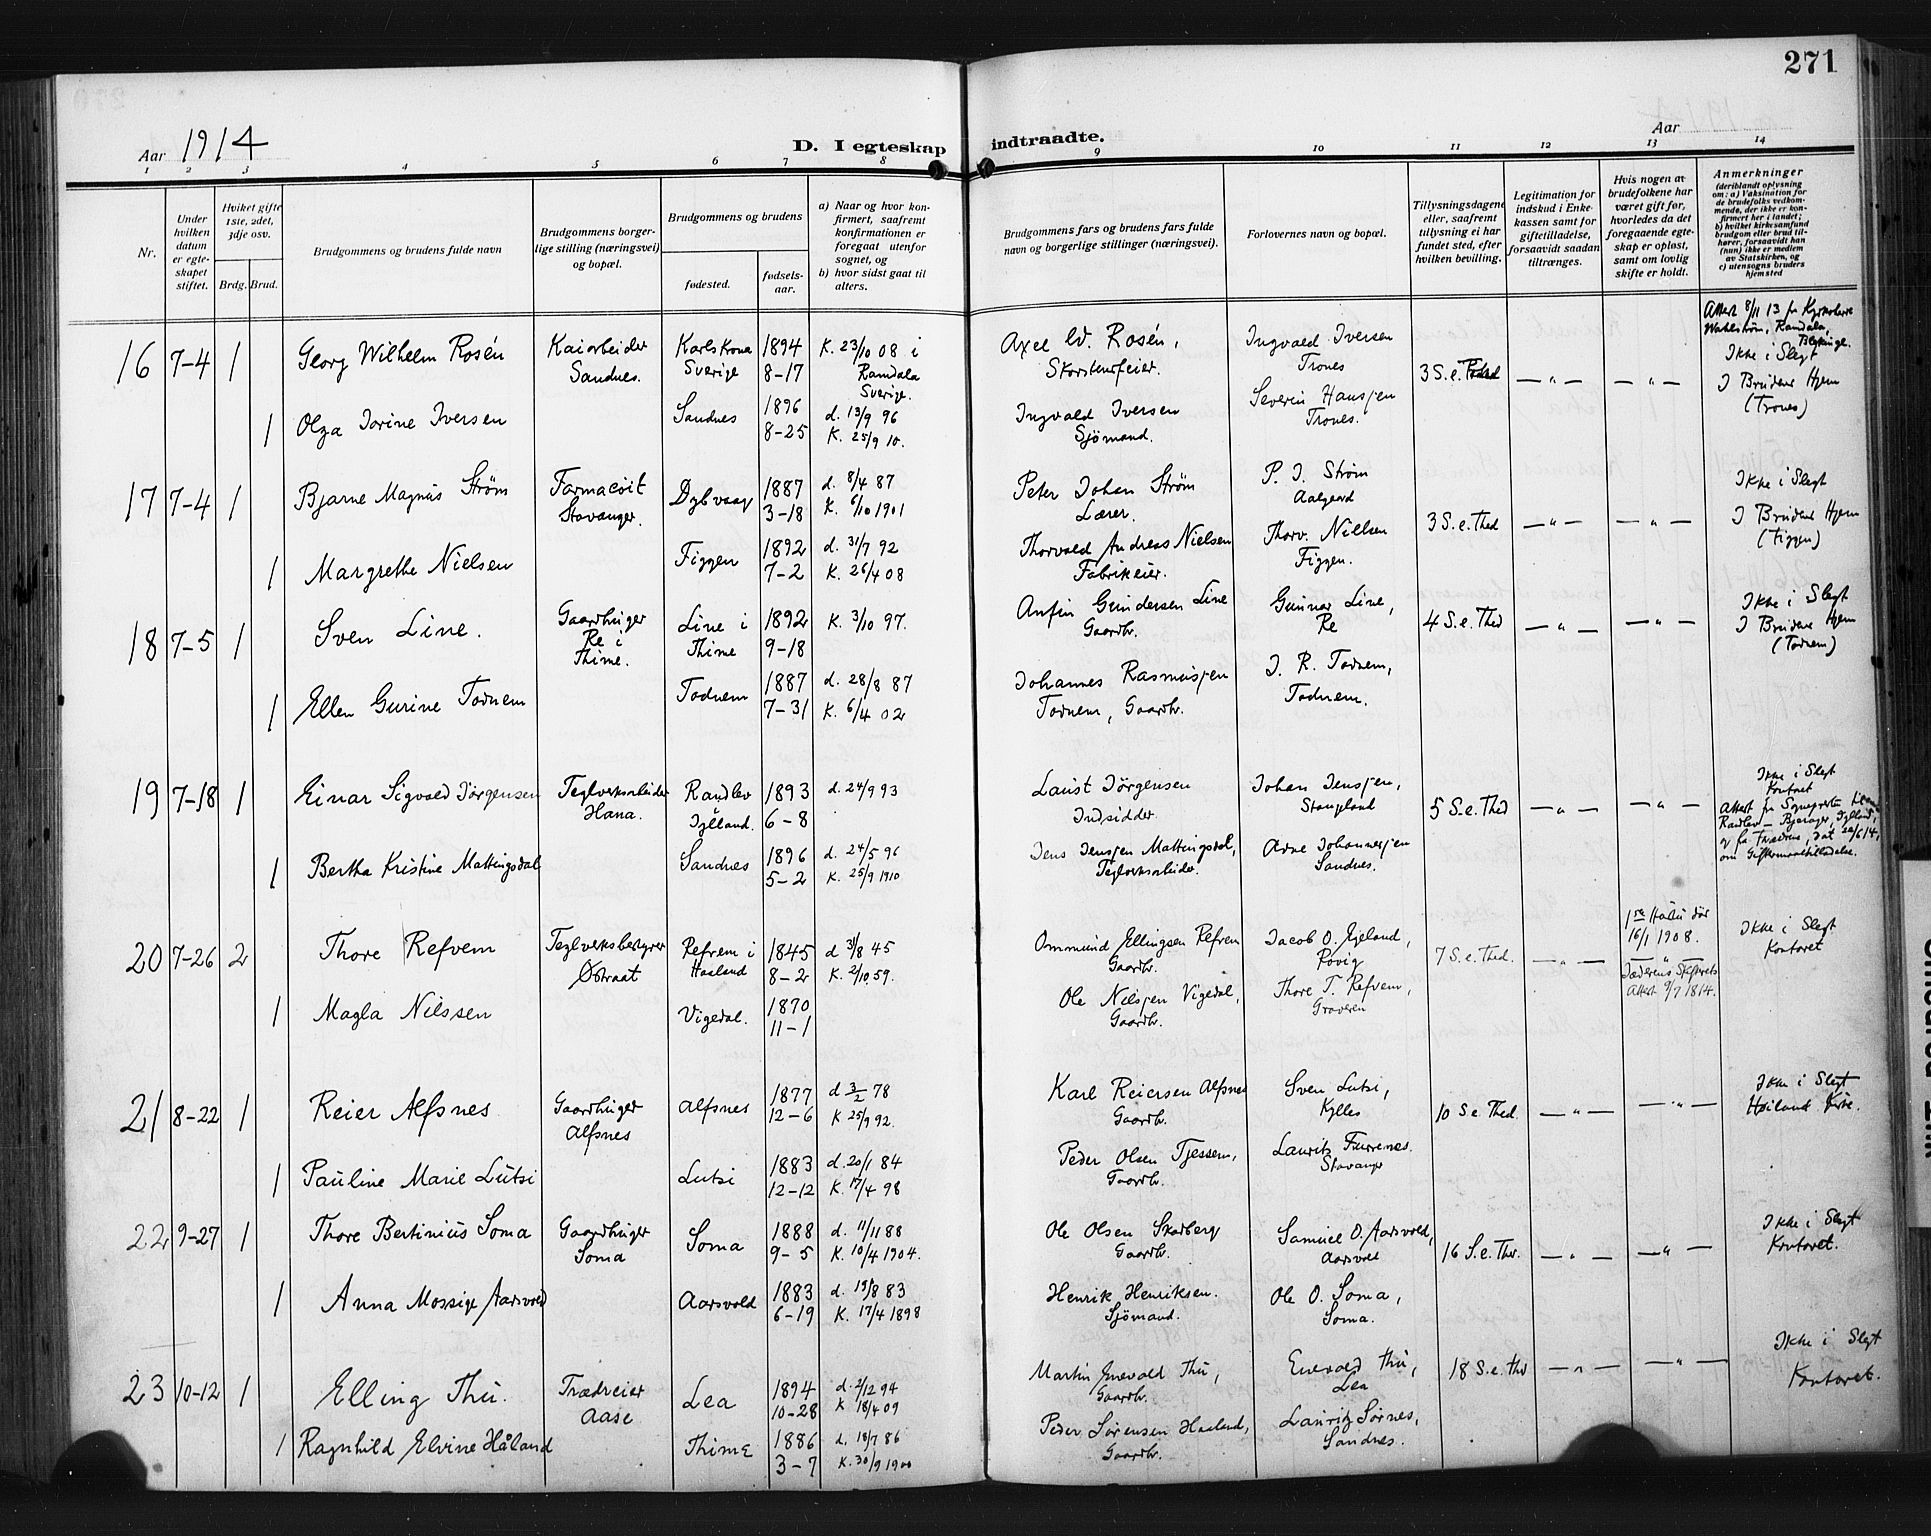 271
Aar 1914
D. I egteskap indtraadte.
Aar
1 2 3 4 5 6 7 8 9 10 11 12 13 14
Nr.
Under hvilken datum er egteskapet stiftet.
Hvilket gifte 1ste, 2det, 3dje osv.
Brdg. Brud.
Brudgommens og brudens fulde navn
Brudgommens borgerlige stilling (næringsvei) og bopæl.
Brudgommens og brudens
fødested.
fødselsaar.
a) Naar og hvor konfirmert, saafremt konfirmationen er foregaat utenfor sognet, og
b) hvor sidst gaat til alters.
Brudgommens fars og brudens fars fulde navn og borgerlige stillinger (næringsvei).
Forlovernes navn og bopæl.
Tillysningsdagene eller, saafremt tillysning ei har fundet sted, efter hvilken bevilling.
Legitimation for indskud i Enkekassen samt for giftetilladelse, forsaavidt saadan tiltrænges.
Hvis nogen at brudefolkene har været gift før, hvorledes da det foregaaende egteskap er opløst, samt om lovlig skifte er holdt.
Anmerkninger
(deriblandt oplysning om: a) Vaksination for de brudefolks vedkommende, der ikke er konfirmert her i landet; b) hvilket kirkesamfund brudgom eller brud tilhører, forsaavidt han (hun) ikke er medlem av Statskirken, og c) utensogns bruders hjemsted
16 7-4 1 Georg Wilhelm Rosén Kaiarbeider Sandnes. Karlskrona Sverige 1894 8-17 K. 23/10 08 i Ramdala Sverige. Axel W. Rosén, Skorstensfeier. Ingvald Iversen Trones 3 S. e. Attest 8/11 13 fr Ramdala, Blekinge. Ikke i Slegt I Brudens Hjem (Trones)
1 Olga Jorine Iversen Sandnes 1896 8-25 d. 13/9 96 K. 25/9 10. Ingvald Iversen Sjömand. Severin Hansjen Trones.
17 7-4 1 Bjarne Magnus Strøm Farmacöit Stavanger. Dybvaag 1887 3-18 d. 8/4 87 K. 6/10 1901 Peter Johan Strøm Lærer. P. J. Strøm Aalgaard 3 S. e. Thed Ikke i Slegt I Brudens Hjem (Figgen)
1 Margrethe Nielsen Figgen 1892 7-2 d. 31/7 92 K. 26/4 08 Thorvald Andreas Nielsen Fabrikeier. Thorv. Nielsen Figgen.
18 7-5 1 Sven Line. Gaardbruger Re i Thime. Line i Thime 1892 9-18 K. 3/10 97. Anfin Gundersen Line Gaardb. Gunnar Line, Re 4 S. e. Thed Ikke i Slegt I Brudens Hjem (Todnem)
1 Ellen Gurine Todnem Todnem 1887 7-31 d. 28/8 87 K. 6/4 02 Johannes Rasmusjen Todnem, Gaardb. J. R. Todnem, Todnem.
19 7-18 1 Einar Sigvald Jörgensen Teglverksarbeider Hana. Randlev Jylland. 1893 6-8 d. 24/9 93 Laust Jörgensen Indsidder. Johan Jensjen, Stangeland 5 S. e. Thed Ikke i Slegt Kontoret Attest fra Sogneprest Randlev - Bjerager, Jylland,
1 Bertha Kristine Mattingsdal Sandnes 1896 5-2 d. 24/5 96 K. 25/9 1910 Jens Jensjen Mattingsdal, Teglverksarbeider. Arne Johannesjen Sandnes. om Giftermaalstilladelse.
20 7-26 2 Thore Refvem Teglverksbestyrer Østraat Refvem i Haaland 1845 8-2 d 31/8 45 K. 2/10 59. Ommund Ellingsen Refvem Gaardb. Jacob O. Ejeland, Rovig 7 S. e. Thed. 1ste Hustru dör 16/1 1908. Jæderens Skifterets Attest 9/7 1814. Ikke i Slegt Kontoret
1 Magla Nilssen Vigedal. 1870 11-1 Ole Nilsjen Vigedal, Gaardb. Thore T. Refvem, Graveren
21 8-22 1 Reier Alfsnes Gaardbruger Alfsnes Alfsnes 1877 12-6 d 3/2 78 K 25/9 92. Karl Reiersen Alfsnes Gaardb. Sven Lutsi, Kylles 10 S. e. Thed. Ikke i Slegt Høiland Kirke.
1 Pauline Marie Lutsi Lutsi 1883 12-12 d. 20/1 84 K. 17/4 98 Peder Olsen Tjessem, Gaardb. Lauritz Furrenes. Stavanger
22 9-27 1 Thore Bertinius Soma Gaardbruger Soma Soma 1888 9-5 d. 11/11 88 K. 10/4 1904. Ole Olsen Skarberg Gaardb. Samuel O. Aarsvold, Aarsvold 16 S. e. Thr. Ikke i Slegt Kontoret.
1 Anna Mossige Aarsvold Aarsvold 1883 6-19 d. 19/8 83 K. 17/4 1898 Henrik Henriksen. Sjömand. Ole O. Soma, Soma.
23 10-12 1 Elling Thu. Trædreier Aase Lea 1894 10-28 d. 2/12 94 K 18/4 09 Martin Enevald Thu, Gaardb. Enevald Thu, Lea 18 S. e. Thd Ikke i Slegt Kontoret.
1 Ragnhild Elvine Håland Thime 1886 3-7 d. 18/7 86 K. 30/9 1900 Peder Sørensen Haaland, Gaardb. Lauritz Sørnes, Sandnes.